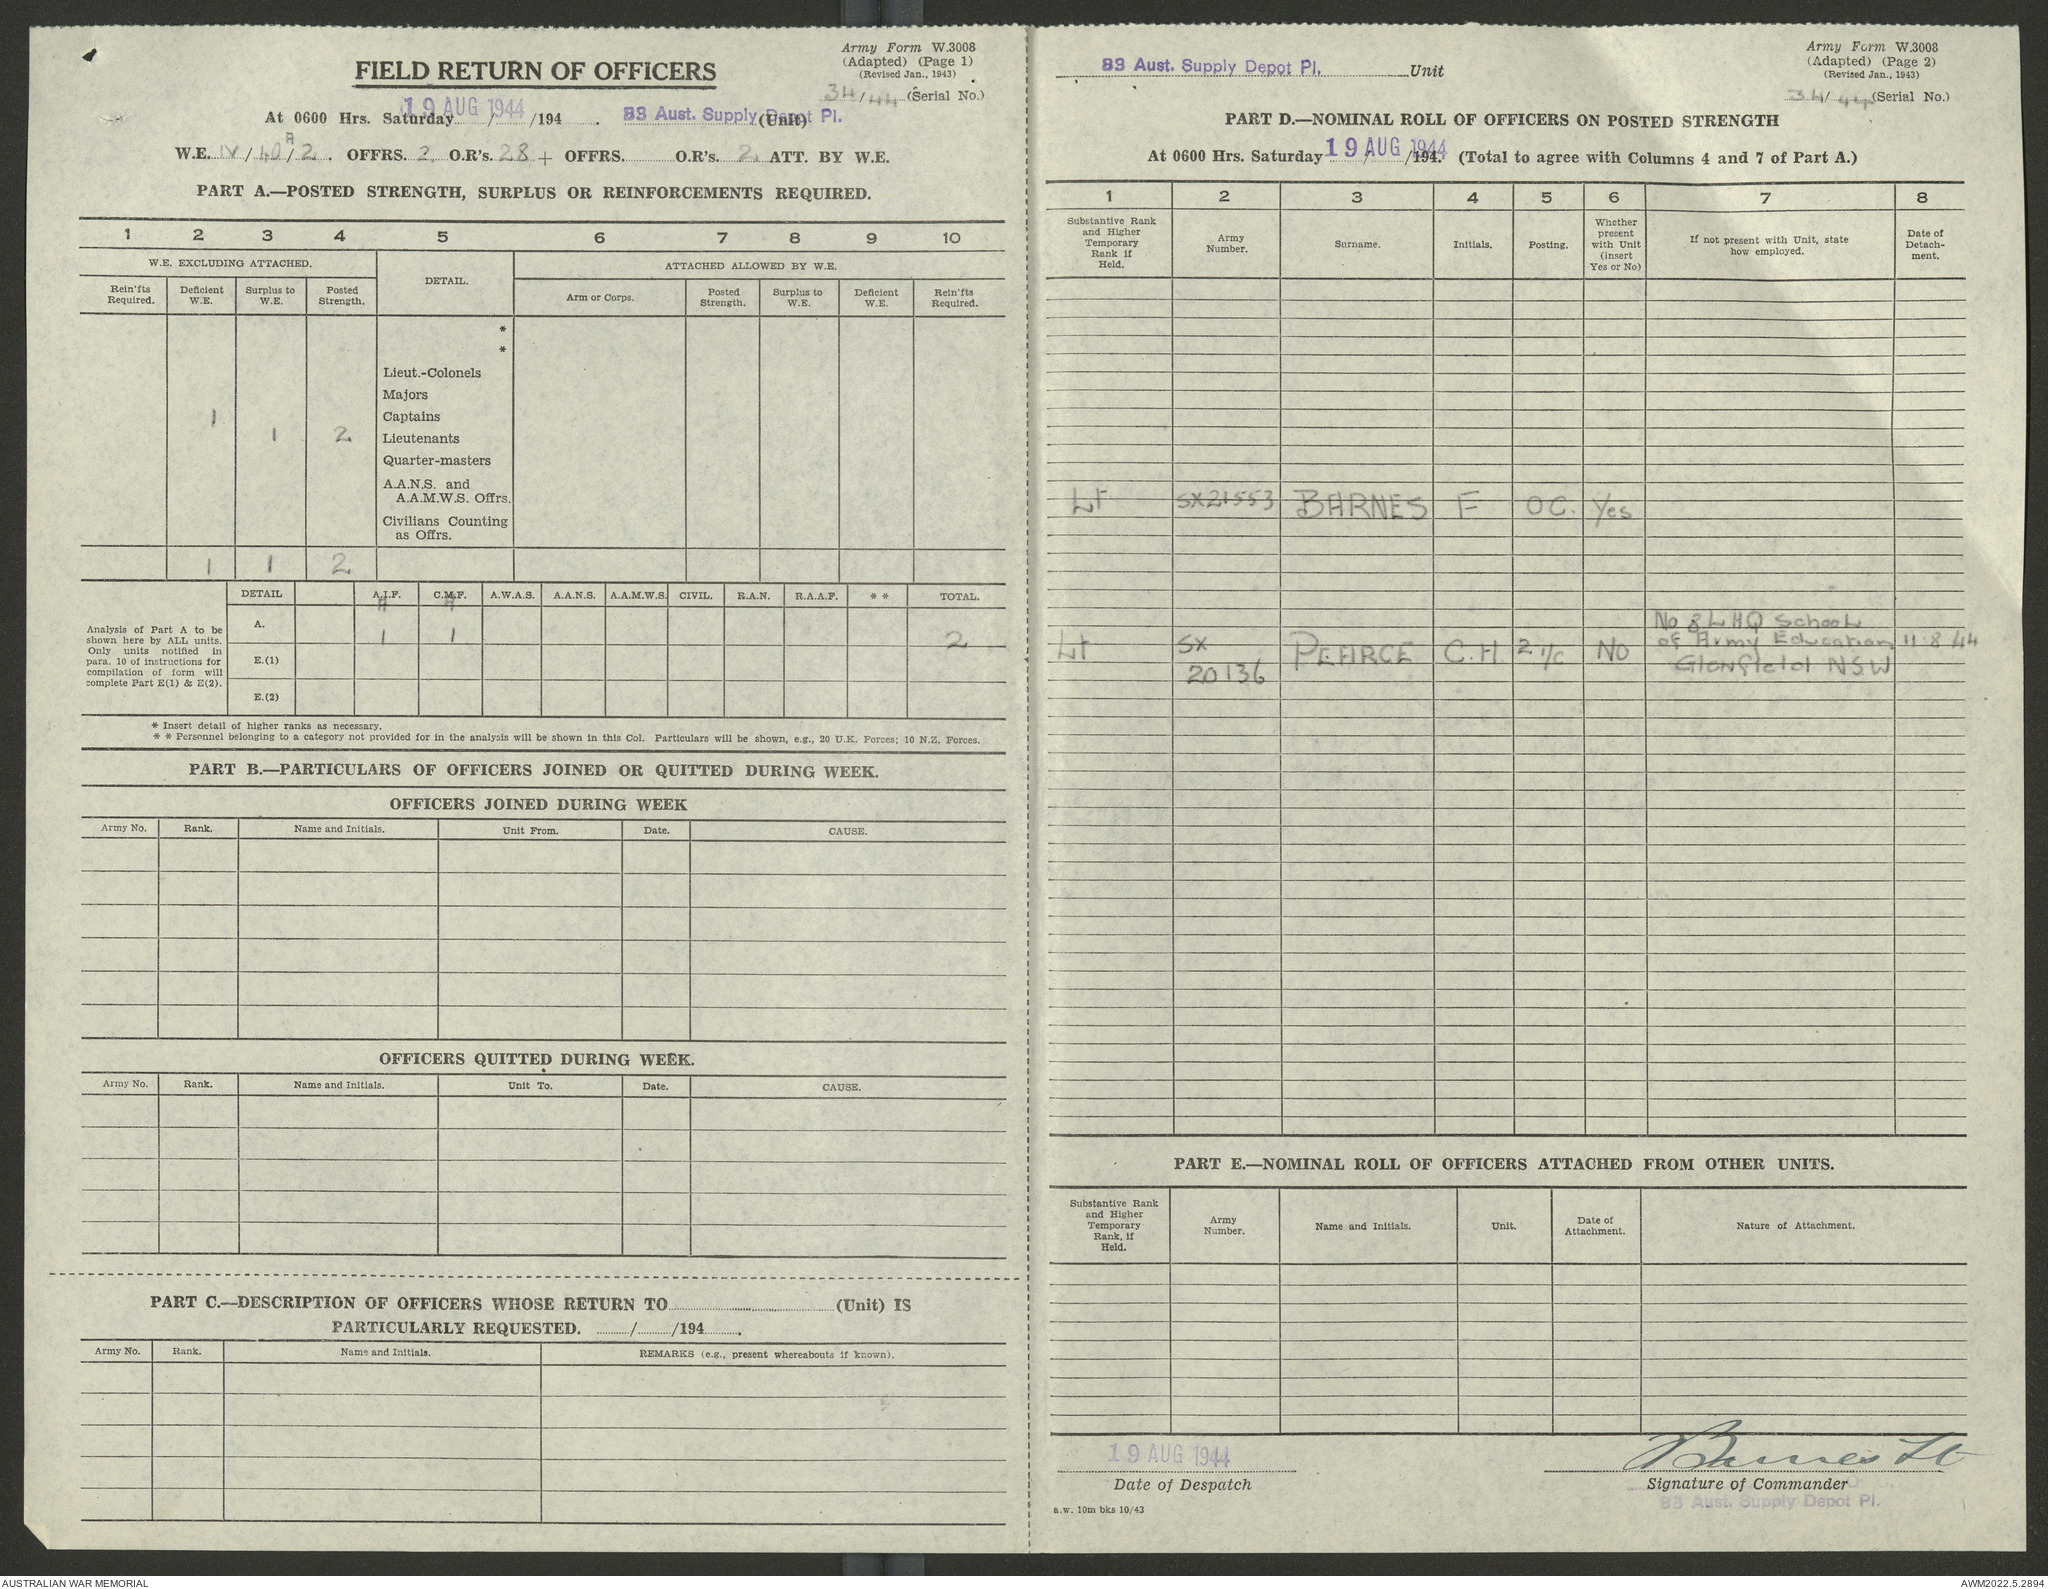 Army Form W.3008
(Adapted) (Page 1)
(Revised Jan., 1943)
FIELD RETURN OF OFFICERS
34/44 (Serial No.)
At 0600 Hrs. Saturday 19 AUG 1944 / /194 . 83 Aust. Supply Depot Pl. (Unit)
W.E. IV/40A/2. OFFRS. 2 O.R's. 28 + OFFRS. O.R's. 2 ATT. BY W.E.
PART A.—POSTED STRENGTH, SURPLUS OR REINFORCEMENTS REQUIRED.
1 2 3 4 5 6 7 8 9 10
W.E. EXCLUDING ATTACHED. DETAIL. ATTACHED ALLOWED BY W.E.
Rein'fts Required. Deficient W.E. Surplus to W.E. Posted Strength. Arm or Corps. Posted Strength. Surplus to W.E. Deficient W.E. Rein'fts Required.
*
*
Lieut.-Colonels
Majors
1 Captains
1 2 Lieutenants
Quarter-masters
A.A.N.S. and
A.A.M.W.S. Offrs.
Civilians Counting
as Offrs.
1 1 2
DETAIL A.I.F. C.M.F. A.W.A.S. A.A.N.S. A.A.M.W.S. CIVIL. R.A.N. R.A.A.F. * * TOTAL.
Analysis of Part A to be
shown here by ALL units.
Only units notified in
para. 10 of instructions for
compilation of form will
complete Part E(1) & E(2).
A. 1 1 2
E.(1)
E.(2)
* Insert detail of higher ranks as necessary.
* * Personnel belonging to a category not provided for in the analysis will be shown in this Col. Particulars will be shown, e.g., 20 U.K. Forces; 10 N.Z. Forces.
PART B.—PARTICULARS OF OFFICERS JOINED OR QUITTED DURING WEEK.
OFFICERS JOINED DURING WEEK
Army No. Rank. Name and Initials. Unit From. Date. CAUSE.
OFFICERS QUITTED DURING WEEK.
Army No. Rank. Name and Initials. Unit To. Date. CAUSE.
PART C.—DESCRIPTION OF OFFICERS WHOSE RETURN TO (Unit) IS
PARTICULARLY REQUESTED. / /194 .
Army No. Rank. Name and Initials. REMARKS (e.g., present whereabouts if known).
Army Form W.3008
(Adapted) (Page 2)
(Revised Jan., 1943)
83 Aust. Supply Depot Pl. Unit
34/44 (Serial No.)
PART D.—NOMINAL ROLL OF OFFICERS ON POSTED STRENGTH
At 0600 Hrs. Saturday 19 AUG 1944 /194. (Total to agree with Columns 4 and 7 of Part A.)
1 2 3 4 5 6 7 8
Substantive Rank and Higher Temporary Rank if Held. Army Number. Surname. Initials. Posting. Whether present with Unit (insert Yes or No) If not present with Unit, state how employed. Date of Detach-ment.
Lt SX21553 BARNES F OC. Yes
No 8 LHQ School
Lt SX PEARCE C.H. 2 i/c No of Army Education 11.8.44
20136 Glenfield NSW
PART E.—NOMINAL ROLL OF OFFICERS ATTACHED FROM OTHER UNITS.
Substantive Rank and Higher Temporary Rank, if Held. Army Number. Name and Initials. Unit. Date of Attachment. Nature of Attachment.
19 AUG 1944 Barnes Lt
Date of Despatch Signature of Commander
83 Aust. Supply Depot Pl.
a.w. 10m bks 10/43
AUSTRALIAN WAR MEMORIAL AWM2022.5.2894